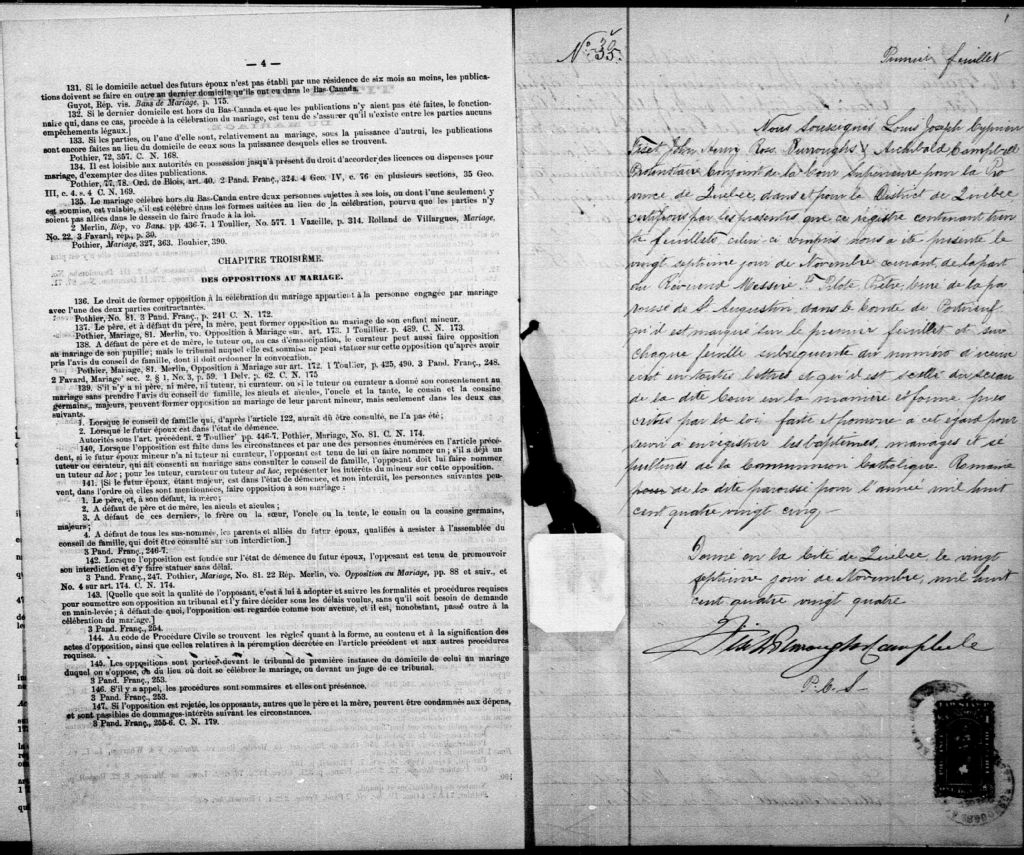 — 4 —
131. Si le domicile actuel des futurs époux n'est pas établi par une résidence de six mois au moins, les publica-
tions doivent se faire en outre au dernier domicile qu'ils ont eu dans le Bas-Canada.
Guyot, Rép. vis. Bans de Mariage, p. 175.
132. Si le dernier domicile est hors du Bas-Canada et que les publications n'y aient pas été faites, le fonction-
naire qui, dans ce cas, procède à la célébration du mariage, est tenu de s'assurer qu'il n'existe entre les parties aucuns
empêchements légaux.]
133. Si les parties, ou l'une d'elles, sont, relativement au mariage, sous la puissance d'autrui, les publications
sont encore faites au lieu du domicile de ceux sous la puissance desquels elles se trouvent.
Pothier, 72, 357. C. N. 168.
134. Il est loisible aux autorités en possession jusqu'à présent du droit d'accorder des licences ou dispenses pour
mariage, d'exempter des dites publications.
Pothier, 77, 78. Ord. de Blois, art. 40. 2 Pand. Franç., 324. 4 Geo. IV, c. 76 en plusieurs sections, 35 Geo.
III, c. 4. s. 4 C. N. 169.
135. Le mariage célébré hors du Bas-Canda entre deux personnes sujettes à ses lois, ou dont l'une seulement y
est soumise, est valable, s'il est célébré dans les formes usitées au lieu de la célébration, pourvu que les parties n'y
soient pas allées dans le dessein de faire fraude à la loi.
2 Merlin, Rép, vo Bans. pp. 436-7. 1 Toullier, No. 577. 1 Vazeille, p. 314. Rolland de Villargues, Mariage,
No. 22. 3 Favard, rep., p. 39.
Pothier, Mariage, 327, 363. Bouhier, 390.
CHAPITRE TROISIÈME.
DES OPPOSITIONS AU MARIAGE.
136. Le droit de former opposition à la célébration du mariage appartient à la personne engagée par mariage
avec l'une des deux parties contractantes.
Pothier, No. 81. 3 Pand. Franç., p. 241 C. N. 172.
137. Le père, et à défaut du père, la mère, peut former opposition au mariage de son enfant mineur.
Pothier, Mariage, 81. Merlin, vo. Opposition à Mariage sur. art. 173. 1 Touillier. p. 489. C. N. 173.
138. A défaut de père et de mère, le tuteur ou, au cas d'émancipation, le curateur peut aussi faire opposition
au mariage de son pupille; mais le tribunal auquel elle est soumise ne peut statuer sur cette opposition qu'après avoir
pris l'avis du conseil de famille, dont il doit ordonner la convocation.
Pothier, Mariage, 81. Merlin, Opposition à Mariage sur art. 172. 1 Toullier, p. 425, 490. 3 Pand. Franç., 248.
2 Favard, Mariage' sec. 2. § 1, No. 3, p. 59. 1 Delv. p. 62. C. N. 175
139. S'il n'y a ni père, ni mère, ni tuteur, ni curateur. ou si le tuteur ou curateur a donné son consentement au
mariage sans prendre l'avis du conseil de famille, les aïeuls et aïeules, l'oncle et la tante, le cousin et la cousine
germains, majeurs, peuvent former opposition au mariage de leur parent mineur, mais seulement dans les deux cas
suivants.
1. Lorsque le conseil de famille qui, d'après l'article 122, aurait dû être consulté, ne l'a pas été;
2. Lorsque le futur époux est dans l'état de démence.
Autorités sous l'art. précédent. 2 Toullier' pp. 446-7. Pothier, Mariage, No. 81. C. N. 174.
140. Lorsque l'opposition est faite dans les circonstances et par une des personnes énumérées en l'article précé-
dent, si le futur époux mineur n'a ni tuteur ni curateur, l'opposant est tenu de lui en faire nommer un; s'il a déjà un
tuteur ou curateur, qui ait consenti au mariage sans consulter le conseil de famille, l'opposant doit lui faire nommer
un tuteur ad hoc; pour les tuteur, curateur ou tuteur ad hoc, représenter les intérêts du mineur sur cette opposition.
141. [Si le futur époux, étant majeur, est dans l'état de démence, et non interdit, les personnes suivantes peu-
vent, dans l'ordre où elles sont mentionnées, faire opposition à son mariage:
1. Le père, et, à son défaut, la mère;
2. A défaut de père et de mère, les aïeuls et aïeules;
3. A défaut de ces derniers, le frère ou la sœur, l'oncle ou la tente, le cousin ou la cousine germains,
majeurs;
4. A défaut de tous les sus-nommés, les parents et alliés du futur époux, qualifiés à assister à l'assemblée du
conseil de famille, qui doit être consulté sur son interdiction.]
3 Pand. Franç., 246-7.
142. Lorsque l'opposition est fondée sur l'état de démence du futur époux, l'opposant est tenu de promouvoir
son interdiction et d'y faire statuer sans délai.
3 Pand. Franç., 247. Pothier, Mariage, No. 81. 22 Rép. Merlin, vo. Opposition au Mariage, pp. 88 et suiv., et
No. 4 sur art. 174. C. N. 174.
143. [Quelque soit la qualité de l'opposant, c'est à lui à adopter et suivre les formalités et procédures requises
pour soumettre son opposition au tribunal et l'y faire décider sous les délais voulus, sans qu'il soit besoin de demande
en main-levée; à défaut de quoi, l'opposition est regardée comme non avenue, et il est, nonobstant, passé outre à la
célébration du mariage.]
3 Pand. Franç., 254.
144. Au code de Procédure Civile se trouvent les règles quant à la forme, au contenu et à la signification des
actes d'opposition, ainsi que celles relatives à la péremption décrétée en l'article précédent et aux autres procédures
requises.
145. Les oppositions sont portées devant le tribunal de première instance du domicile de celui au mariage
duquel on s'oppose, ou du lieu où doit se célébrer le mariage, ou devant un juge de ce tribunal.
3 Pand. Franç., 253.
146. S'il y a appel, les procédures sont sommaires et elles ont présence.
3 Pand. Franç., 253.
147. Si l'opposition est rejetée, les opposants, autres que le père et la mère, peuvent être condamnés aux dépens,
et sont passibles de dommages-intérêts suivant les circonstances.
3 Pand. Franç., 255-6. C. N. 179.
No. 35.
1
Premier feuillet
Nous Soussignés Louis Joseph Cyprien
Fiset John Henry Ross Burroughs & Archibald Campbell
Protonotaire Conjoint de la Cour Supérieure pour la Pro
vince de Québec, dans et pour le District de Québec
certifions par les presentes que ce registre contenant tren
te feuillets celui-ci compris nous a été présenté le
vingt septième jour de Novembre courant de la part
du Révérend Messire F. Pilote Prêtre, Curé de la pa
roisse de St. Augustin, dans le Comté de Portneuf
qu'il est marqué sur le premier feuillet et sur
chaque feuille subséquente du numéro d'iceux
écrit en toutes lettres et qu'il est scellé du sceau
de la dite Cour en la manière et forme pres
crites par la loi faite et pourvue à cet égard pour
servir à enregistrer les baptêmes, mariages et sé
pultures de la Communion Catholique Romaine
pour de la dite paroisse pour l'année mil huit
cent quatre vingt cinq.-
Donné en la Cité de Québec le vingt
septième jour de Novembre, mil huit
cent quatre vingt quatre
Fiset Burroughs Campbell
P. C. S.